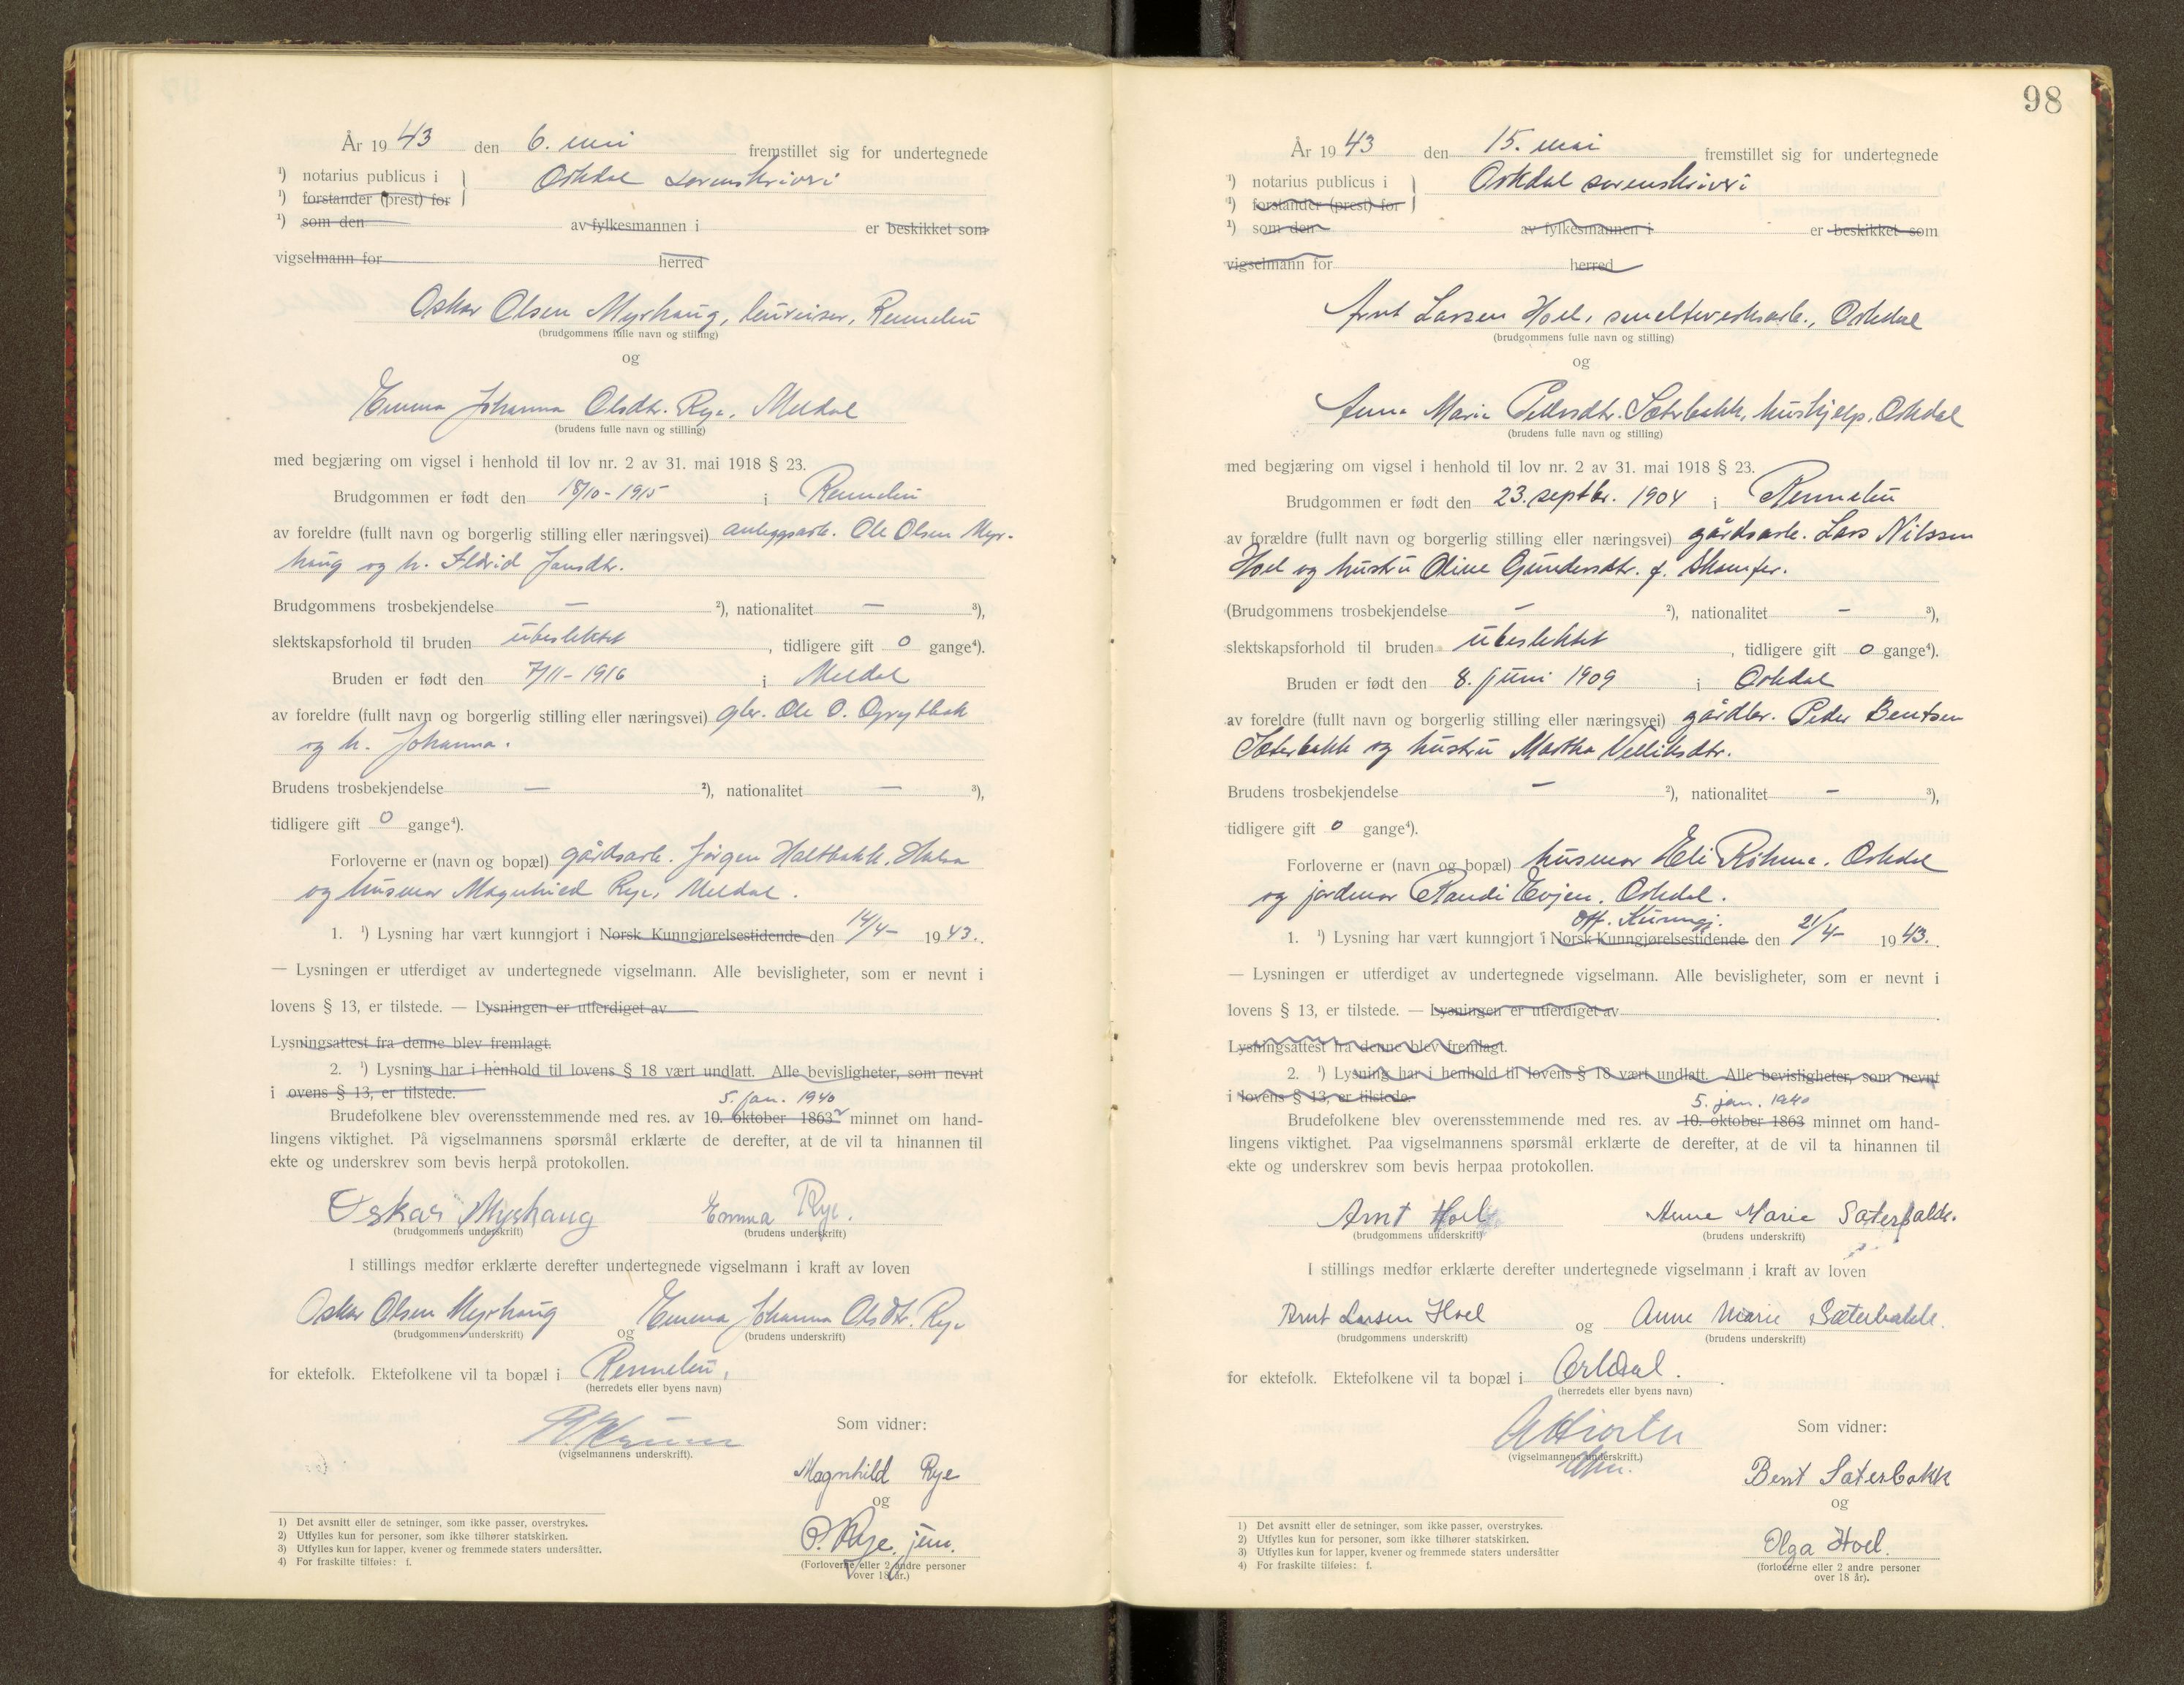 År 1943 den 6. mai fremstillet sig for undertegnede
¹) notarius publicus i Orkdal sorenskriveri
¹) forstander (prest) for
¹) som den av fylkesmannen i er beskikket som
vigselmann for herred
Oskar Olsen Myrhaug, bureiser, Rennebu
(brudgommens fulle navn og stilling)
og
Emma Johanna Olsdtr. Rye, Meldal
(brudens fulle navn og stilling)
med begjæring om vigsel i henhold til lov nr. 2 av 31. mai 1918 § 23.
Brudgommen er født den 18/10-1915 i Rennebu
av foreldre (fullt navn og borgerlig stilling eller næringsvei) anleggsarb. Ole Olsen Myr-
haug og h. Ildrid Jonsdtr.
Brudgommens trosbekjendelse — ²), nationalitet — ³),
slektskapsforhold til bruden ubeslektet, tidligere gift 0 gange⁴).
Bruden er født den 7/11-1916 i Meldal
av foreldre (fullt navn og borgerlig stilling eller næringsvei) gbr. Ole O. Grytbak
og h. Johanna.
Brudens trosbekjendelse — ²), nationalitet — ³),
tidligere gift 0 gange⁴).
Forloverne er (navn og bopæl) gårdsarb. Jørgen Haltbakk, Halsa
og husmor Magnhild Rye, Meldal.
1. ¹) Lysning har vært kunngjort i Norsk Kunngjørelsestidende den 14/4- 1943.
— Lysningen er utferdiget av undertegnede vigselmann. Alle bevisligheter, som er nevnt i
lovens § 13, er tilstede. — Lysningen er utferdiget av
Lysningsattest fra denne blev fremlagt.
2. ¹) Lysning har i henhold til lovens § 18 vært undlatt. Alle bevisligheter, som nevnt
i ovens § 13, er tilstede.
5. jan. 1940
Brudefolkene blev overensstemmende med res. av 10. oktober 1863 minnet om hand-
lingens viktighet. På vigselmannens spørsmål erklærte de derefter, at de vil ta hinannen til
ekte og underskrev som bevis herpå protokollen.
Oskar Myrhaug Emma Rye.
(brudgommens underskrift) (brudens underskrift)
I stillings medfør erklærte derefter undertegnede vigselmann i kraft av loven
Oskar Olsen Myrhaug og Emma Johanna Olsdtr. Rye
(brudgommens underskrift) (brudens underskrift)
for ektefolk. Ektefolkene vil ta bopæl i Rennebu,
(herredets eller byens navn)
(vigselmannens underskrift).
Som vidner:
Magnhild Rye
og
O. Rye. jun.
(Forloverne eller 2 andre personer
over 18 år.)
1) Det avsnitt eller de setninger, som ikke passer, overstrykes.
2) Utfylles kun for personer, som ikke tilhører statskirken.
3) Utfylles kun for lapper, kvener og fremmede staters undersåtter.
4) For fraskilte tilføies: f.
98
År 1943 den 15. mai fremstillet sig for undertegnede
¹) notarius publicus i Orkdal sorenskriveri
¹) forstander (prest) for
¹) som den av fylkesmannen i er beskikket som
vigselmann for herred
Arnt Larsen Hoel, smelteverksarb., Orkdal
(brudgommens fulle navn og stilling)
og
Anne Marie Pedersdtr. Sæterbakk, hushjelp, Orkdal
(brudens fulle navn og stilling)
med begjæring om vigsel i henhold til lov nr. 2 av 31. mai 1918 § 23.
Brudgommen er født den 23. septbr. 1904 i Rennebu
av forældre (fullt navn og borgerlig stilling eller næringsvei) gårdsarb. Lars Nilssen
Hoel og hustru Oline Gundersdtr. f. Skamfer.
(Brudgommens trosbekjendelse — ²), nationalitet — ³),
slektskapsforhold til bruden ubeslektet, tidligere gift 0 gange⁴).
Bruden er født den 8. juni 1909 i Orkdal
av foreldre (fullt navn og borgerlig stilling eller næringsvei) gårdbr. Peder Bentsen
Sæterbakk og hustru Martha Velliksdtr.
Brudens trosbekjendelse — ²), nationalitet — ³),
tidligere gift 0 gange⁴).
Forloverne er (navn og bopæl) husmor Eli Rohme, Orkdal
og jordmor Randi Evjen, Orkdal.
Off. Kunngj.
1. ¹) Lysning har vært kunngjort i Norsk Kunngjørelsestidende den 21/4- 1943.
— Lysningen er utferdiget av undertegnede vigselmann. Alle bevisligheter, som er nevnt i
lovens § 13, er tilstede. — Lysningen er utferdiget av
Lysningsattest fra denne blev fremlagt.
2. ¹) Lysning har i henhold til lovens § 18 vært undlatt. Alle bevisligheter, som nevnt
i lovens § 13, er tilstede.
5. jan. 1940
Brudefolkene blev overensstemmende med res. av 10. oktober 1863 minnet om hand-
lingens viktighet. Paa vigselmannens spørsmål erklærte de derefter, at de vil ta hinannen til
ekte og underskrev som bevis herpaa protokollen.
Arnt Hoel Anne Marie Sæterbakk.
(brudgommens underskrift) (brudens underskrift)
I stillings medfør erklærte derefter undertegnede vigselmann i kraft av loven
Arnt Larsen Hoel og Anne Marie Sæterbakk.
(brudgommens underskrift) (brudens underskrift)
for ektefolk. Ektefolkene vil ta bopæl i Orkdal.
(herredets eller byens navn)
(vigselmannens underskrift.)
Som vidner:
Bent Sæterbakk
og
Olga Hoel.
(forloverne eller 2 andre personer
over 18 år).
1) Det avsnitt eller de setninger, som ikke passer, overstrykes.
2) Utfylles kun for personer, som ikke tilhører statskirken.
3) Utfylles kun for lapper, kvener og fremmede staters undersåtter
4) For fraskilte tilføies: f.